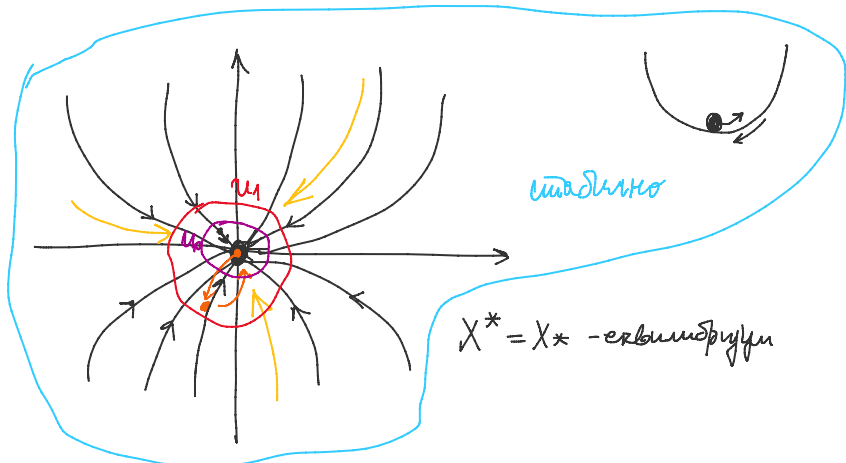 U₁
стабилно
U₀
X* = X* - еквилибриум